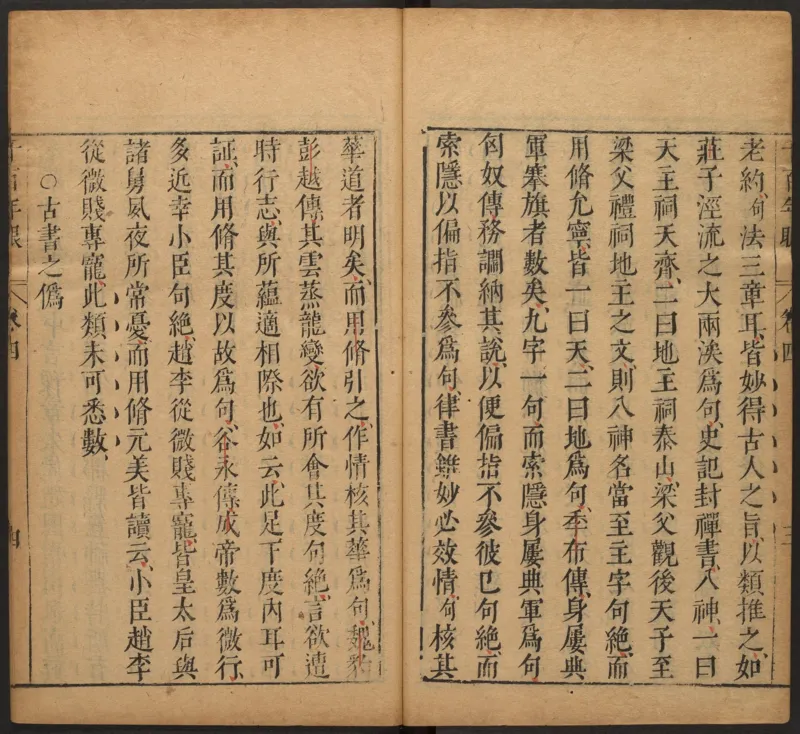 老約、句法三章耳、皆妙得古人之旨、以類推之、如
莊子涇流之大兩涘爲句、史記封禪書、八神、一曰
天主祠天齊、二曰地主祠泰山、梁父觀後天子至
梁父禮祠地主之文、則八神名當至主字句絶、而
用脩允寧、皆一曰天、二曰地爲句、季布傳、身屢典
軍搴旗者數矣、九字一句、而索隱身屢典軍爲句
匈奴傳務讇納其說、以便偏指不參彼巳句絶、而
索隱以偏指不參爲句、律書雖妙必效情、句核其
華道者明矣、而用脩引之、作情核其華爲句、魏豹
彭越傳其雲蒸龍變欲有所會其度句絶、言欲遭
時行志、與所蘊適相際也、如云、此足下度內耳可
証、而用脩其度以故爲句、谷永傳成帝數爲微行、
多近幸小臣句絶、趙李從微賤專寵、皆皇太后與
諸舅夙夜所常憂、而用脩元美皆讀云、小臣趙李
從微賤專寵、此類未可悉數、
○古書之僞
千百年眼
卷四
三
千百年眼
卷四
四